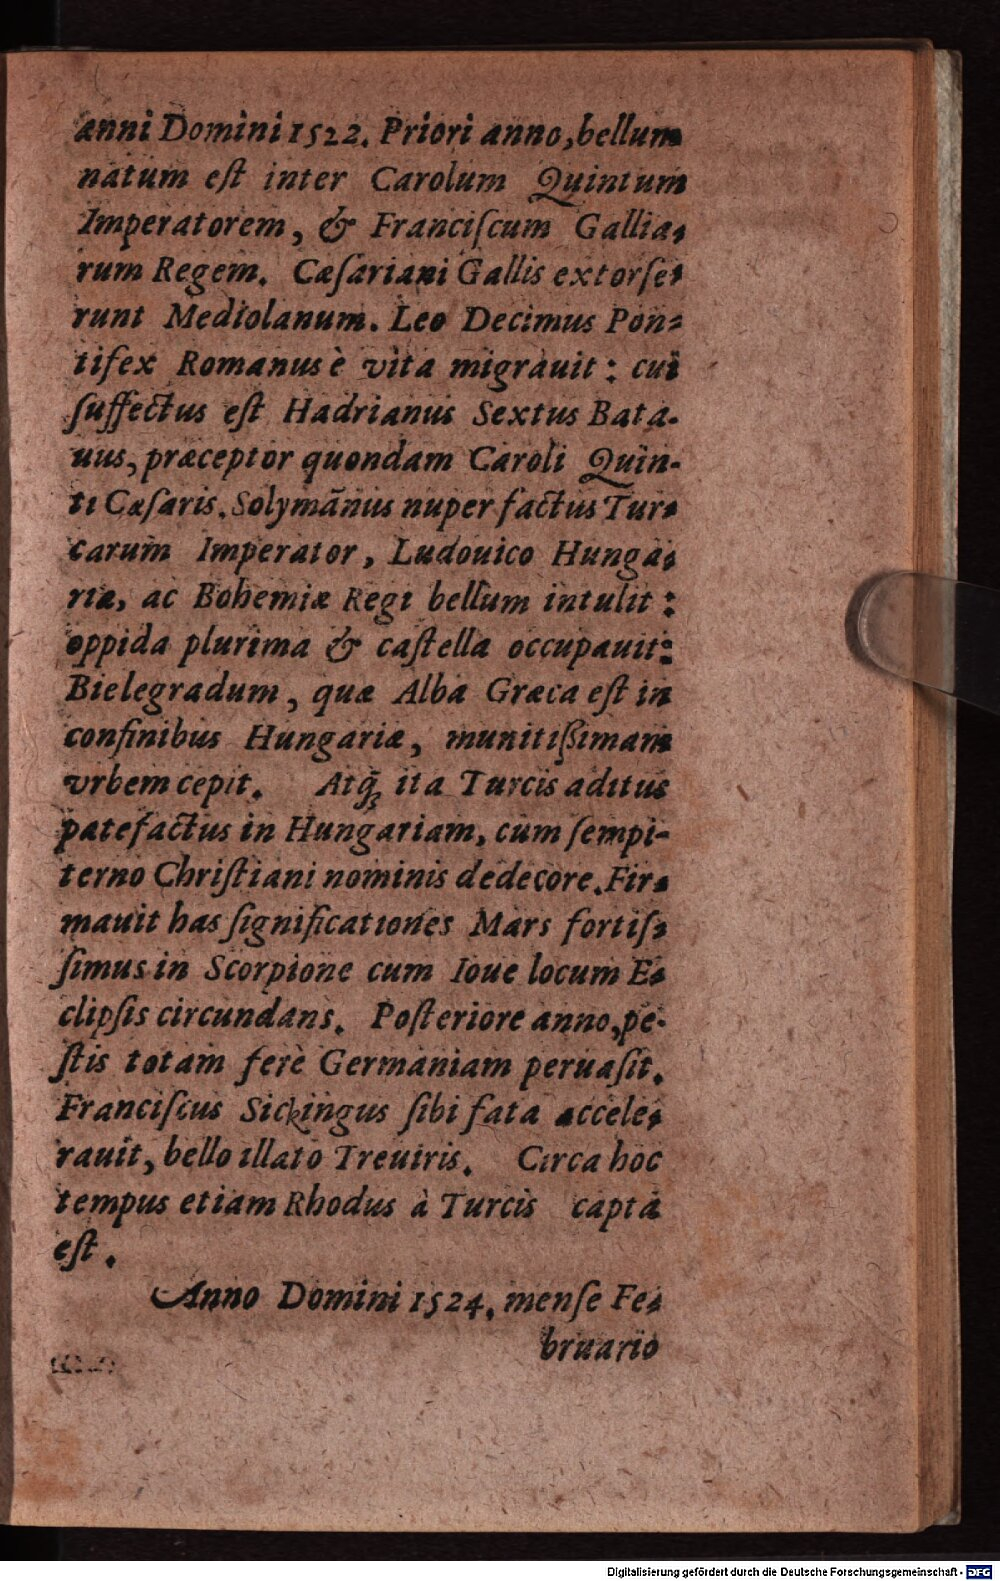 anni Domini 1522. Priori anno, bellum
natum eſt inter Carolum Quintum
Imperatorem, & Franciſcum Gallia⸗
rum Regem. Cæſariani Gallis extorſe⸗
runt Mediolanum. Leo Decimus Pon⸗
tifex Romanus è vita migrauit: cui
ſuffectus eſt Hadrianus Sextus Bata-
uus, præceptor quondam Caroli Quin-
ti Cæſaris. Solymãnus nuper factus Tur⸗
carum Imperator, Ludouico Hunga⸗
riæ, ac Bohemiæ Regi bellum intulit:
oppida plurima & caſtella occupauit:
Bielegradum, quæ Alba Græca eſt in
confinibus Hungariæ, munitißimam
vrbem cepit. Atq́; ita Turcis aditus
patefactus in Hungariam, cum ſempi-
terno Chriſtiani nominis dedecore. Fir⸗
mauit has ſignificationes Mars fortiſ⸗
ſimus in Scorpione cum Ioue locum E⸗
clipſis circundans. Poſteriore anno, pe-
ſtis totam ferè Germaniam peruaſit.
Franciſcus Sickingus ſibi fata accele⸗
rauit, bello illato Treuiris. Circa hoc
tempus etiam Rhodus à Turcis capta
eſt.
Anno Domini 1524. menſe Fe⸗
bruario
Digitalisierung gefördert durch die Deutsche Forschungsgemeinschaft - DFG